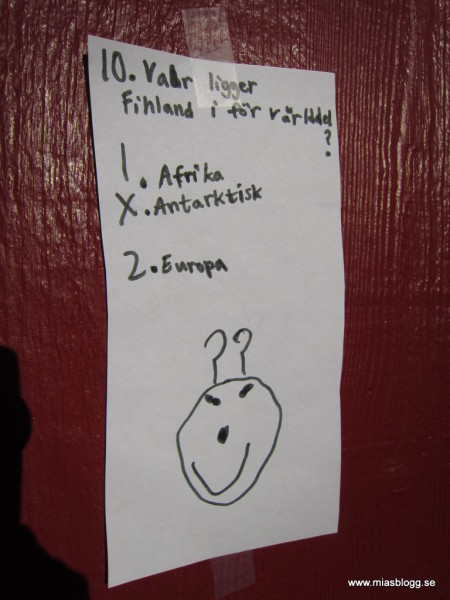 10. Valr ligger
Finland i för värlldel
?
1. Afrika
X. Antarktisk
2. Europa
??
www.miasblogg.se